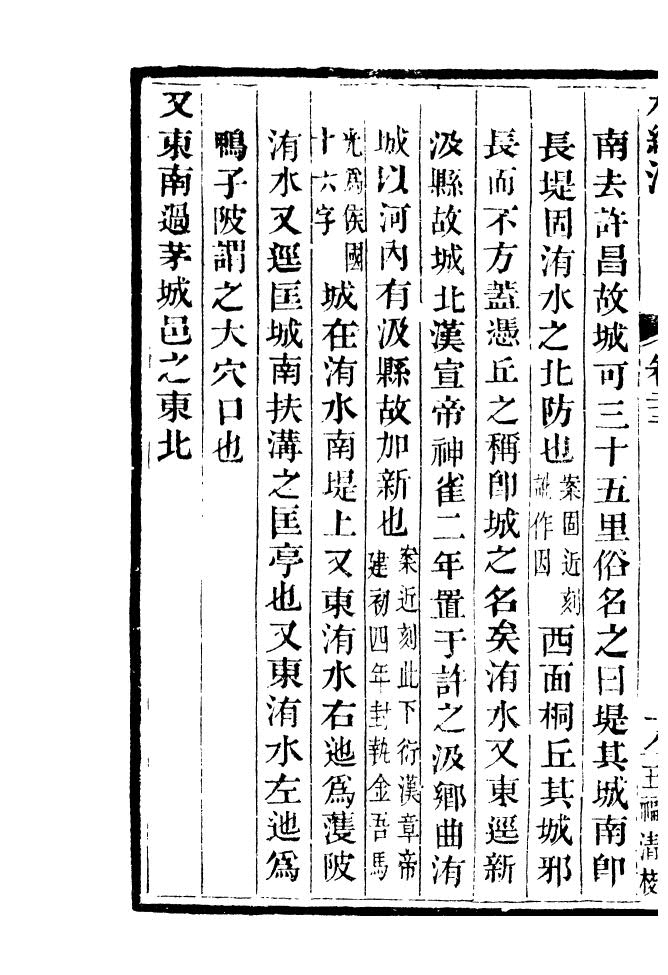 水經注 卷二十二 王福清校
南去許昌故城可三十五里俗名之曰堤其城南卽
長堤固洧水之北防也案固近刻訛作因西面桐丘其城邪
長而不方蓋憑丘之稱卽城之名矣洧水又東逕新
汲縣故城北漢宣帝神雀二年置于許之汲鄉曲洧
城以河內有汲縣故加新也案近刻此下衍漢章帝建初四年封執金吾馬
光爲侯國十六字城在洧水南堤上又東洧水右迆爲濩陂
洧水又逕匡城南扶溝之匡亭也又東洧水左迆爲
鴨子陂謂之大穴口也
又東南過茅城邑之東北